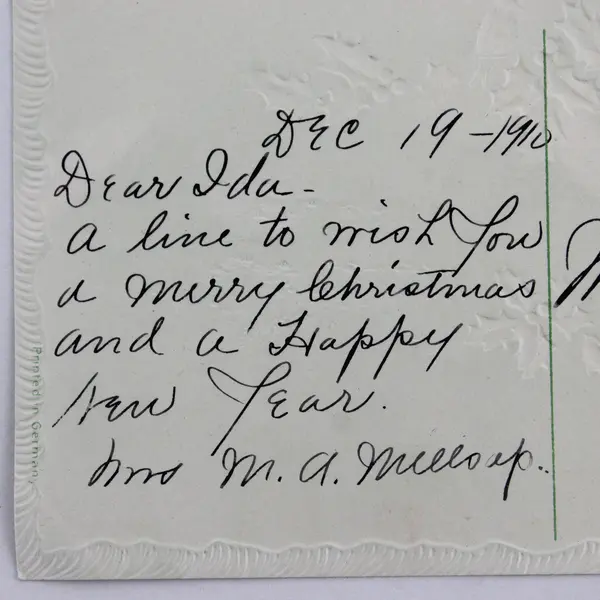 Dec 19-1910
Dear Ida-
a line to wish you
a merry Christmas
and a Happy
New Year.
Mrs M. A.
Printed in German